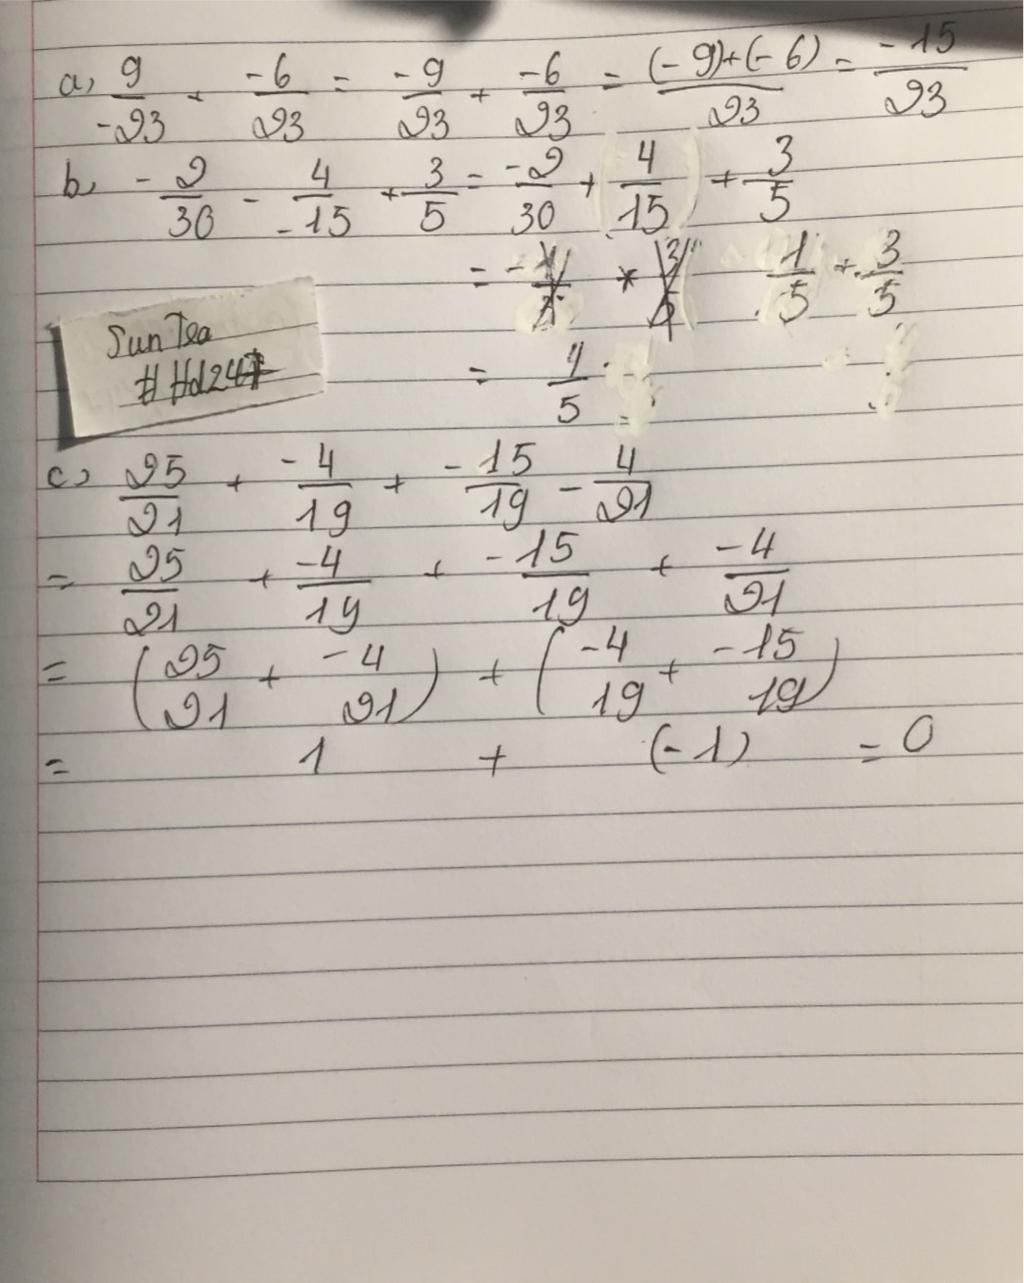 a, 9/-23 + -6/23 = -9/23 + -6/23 = (-9)+(-6)/23 = -15/23
b, -2/30 - 4/-15 + 3/5 = -2/30 + 4/15 + 3/5
= 1/5 + 3/5
= 4/5
Sun Tea
c, 25/21 + -4/19 + -15/19 - 4/21
= 25/21 + -4/19 + -15/19 + -4/21
= (25/21 + -4/21) + (-4/19 + -15/19)
= 1 + (-1) = 0